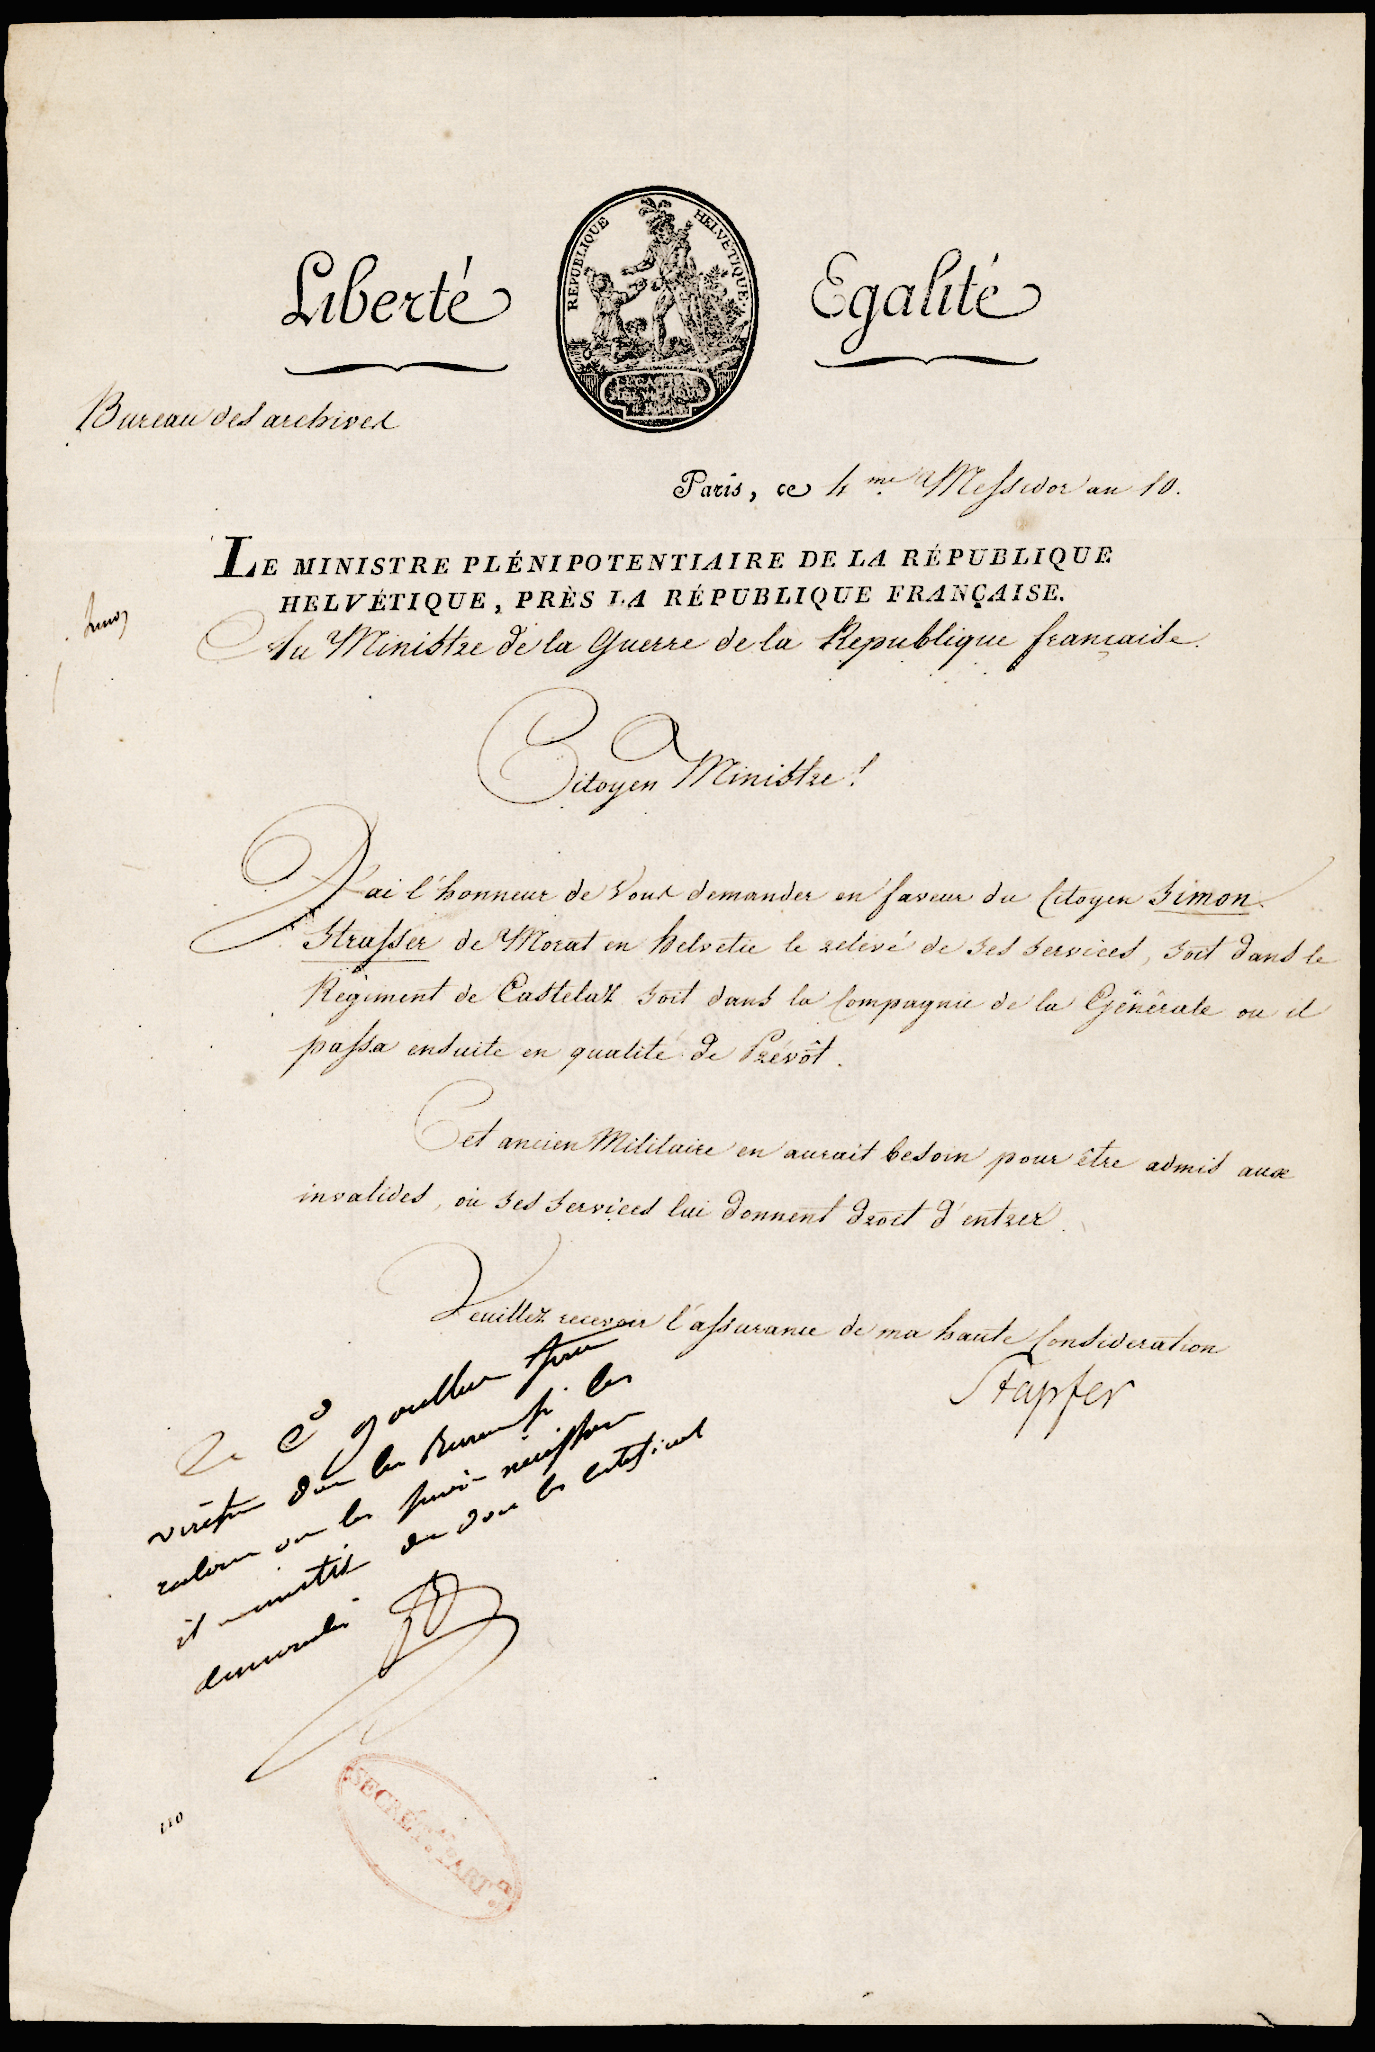 Liberté
Egalité
REPUBLIQUE HELVETIQUE.
Bureau des archives
Paris, ce 4.me Messidor an 10.
LE MINISTRE PLÉNIPOTENTIAIRE DE LA RÉPUBLIQUE
HELVÉTIQUE, PRÈS LA RÉPUBLIQUE FRANÇAISE.
Au Ministre de la Guerre de la Republique française.
Citoyen Ministre!
J'ai l'honneur de Vous demander en faveur du Citoyen Simon
Strasser de Morat en helvetie le relevé de ses services, soit dans le
Régiment de Castelaz soit dans la Compagnie de la Générale ou il
passa ensuite en qualité de Prévôt.
Cet ancien Militaire en aurait besoin pour être admis aux
invalides, où ses services lui donnent droit d'entrer.
Veuillez recevoir l'assurance de ma haute Consideration
Stapfer
Le Cn
dans les Bureaux si les
il
demandé
110
SECRÉT. PART.